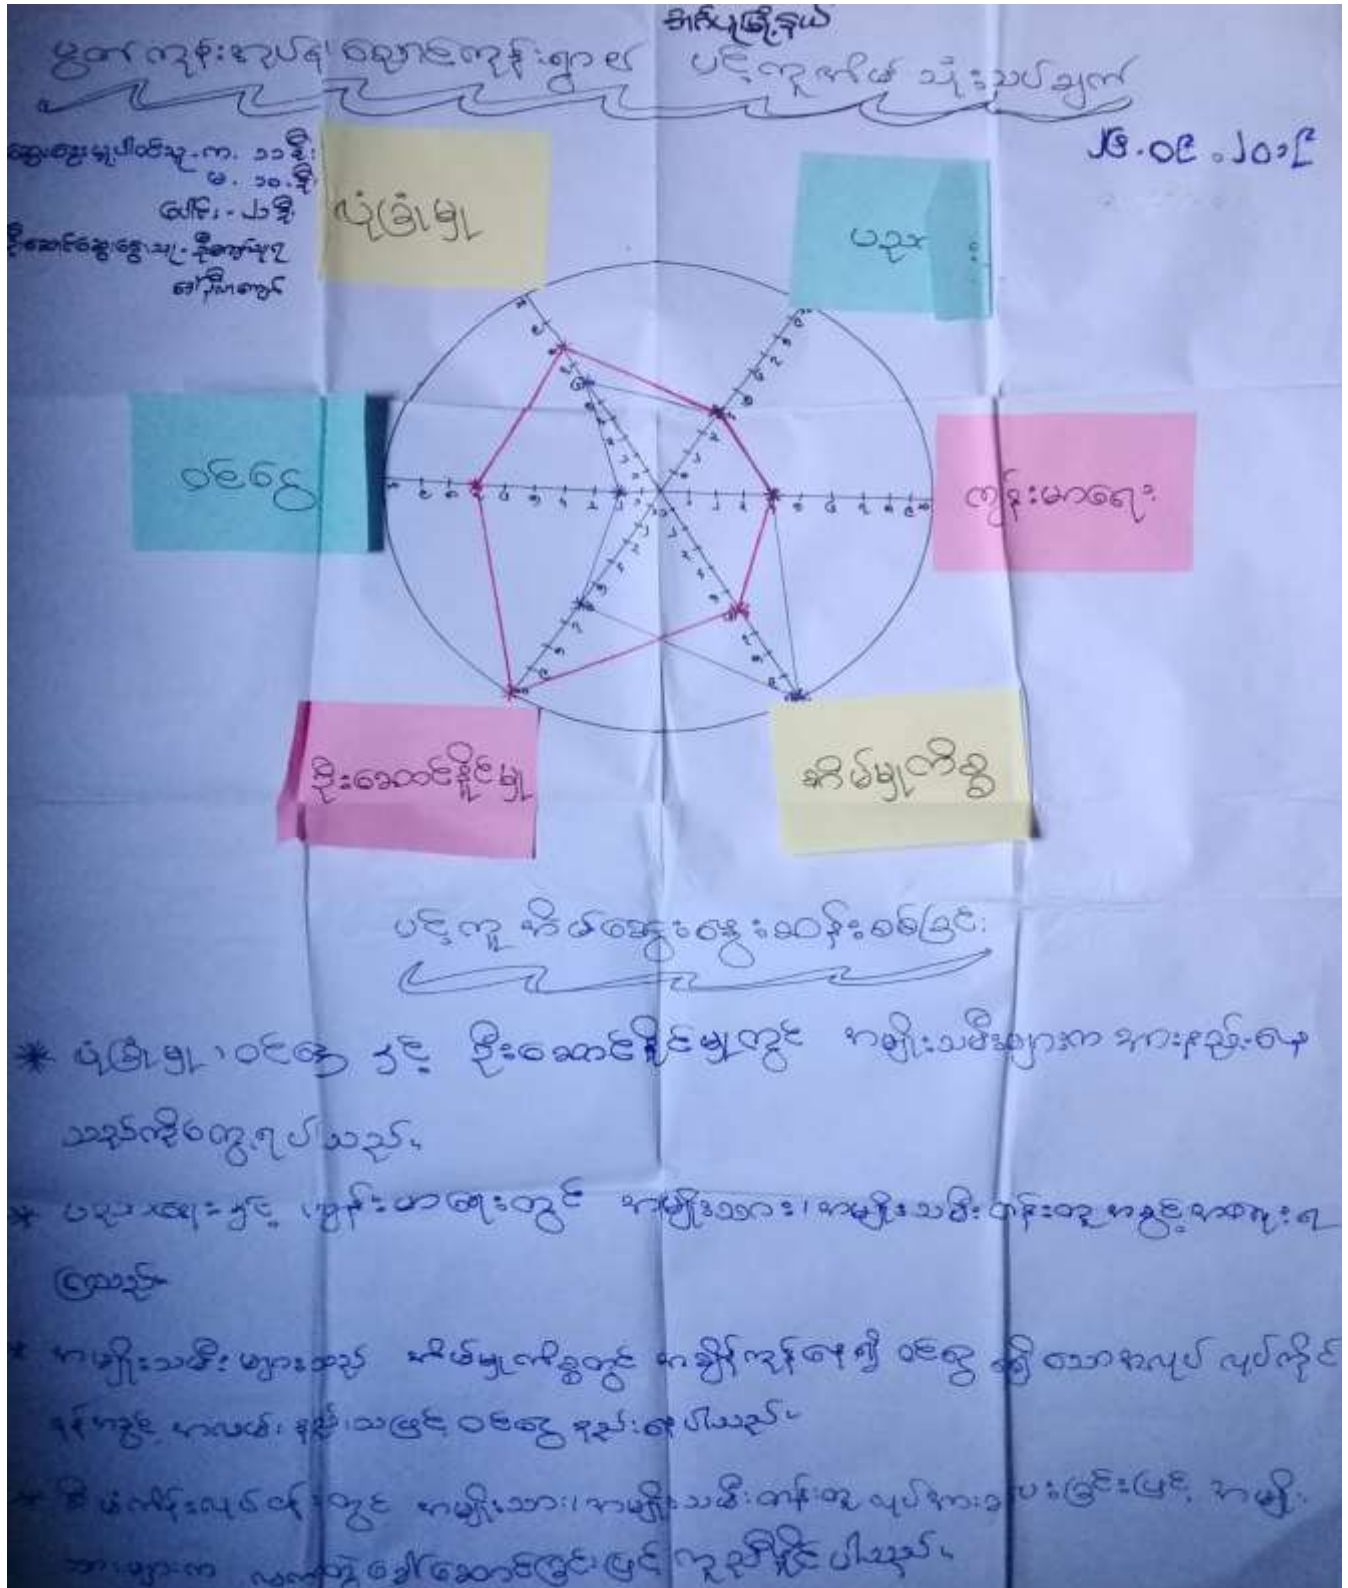 အင်းပူမြို့နယ်
ကျွန်းအုပ်စု၊ ညောင်ကျွန်းရွာ၏ ပင့်ကူအိမ် သုံးသပ်ချက်
၂၆.၀၉.၂၀၁၉
ဆွေးနွေးမှုပါဝင်သူ - က. ၁၁ ဦး
မ. ၁၀ ဦး
ပေါင်း - ၂၁ ဦး
ဦးဆောင်ဆွေးနွေးသူ -
လုံခြုံမှု
ပညာရေး
ဝင်ငွေ
ကျန်းမာရေး
ဦးဆောင်နိုင်မှု
အိမ်မှုကိစ္စ
ပင့်ကူအိမ်ဆွေးနွေးဆန်းစစ်ခြင်း
* လုံခြုံမှု၊ ဝင်ငွေ နှင့် ဦးဆောင်နိုင်မှုတွင် အမျိုးသမီးများက အားနည်းနေ
သည်ကိုတွေ့ရပါသည်။
* ပညာရေးနှင့် ကျန်းမာရေးတွင် အမျိုးသား၊ အမျိုးသမီးတန်းတူ အခွင့်အရေးရ
ကြသည်။
* အမျိုးသမီးများသည် အိမ်မှုကိစ္စတွင် အချိန်ကုန်နေ၍ ဝင်ငွေ ရရှိသောအလုပ် လုပ်ကိုင်
ရန်အခွင့်အလမ်း နည်းသဖြင့် ဝင်ငွေ နည်းနေပါသည်။
* စီမံကိန်းလုပ်ငန်းတွင် အမျိုးသား၊ အမျိုးသမီးတန်းတူ လုပ်အားခပေးခြင်းဖြင့် အမျိုး
သားများက လက်တွဲခေါ်ဆောင်ခြင်းဖြင့် ကူညီနိုင်ပါသည်။